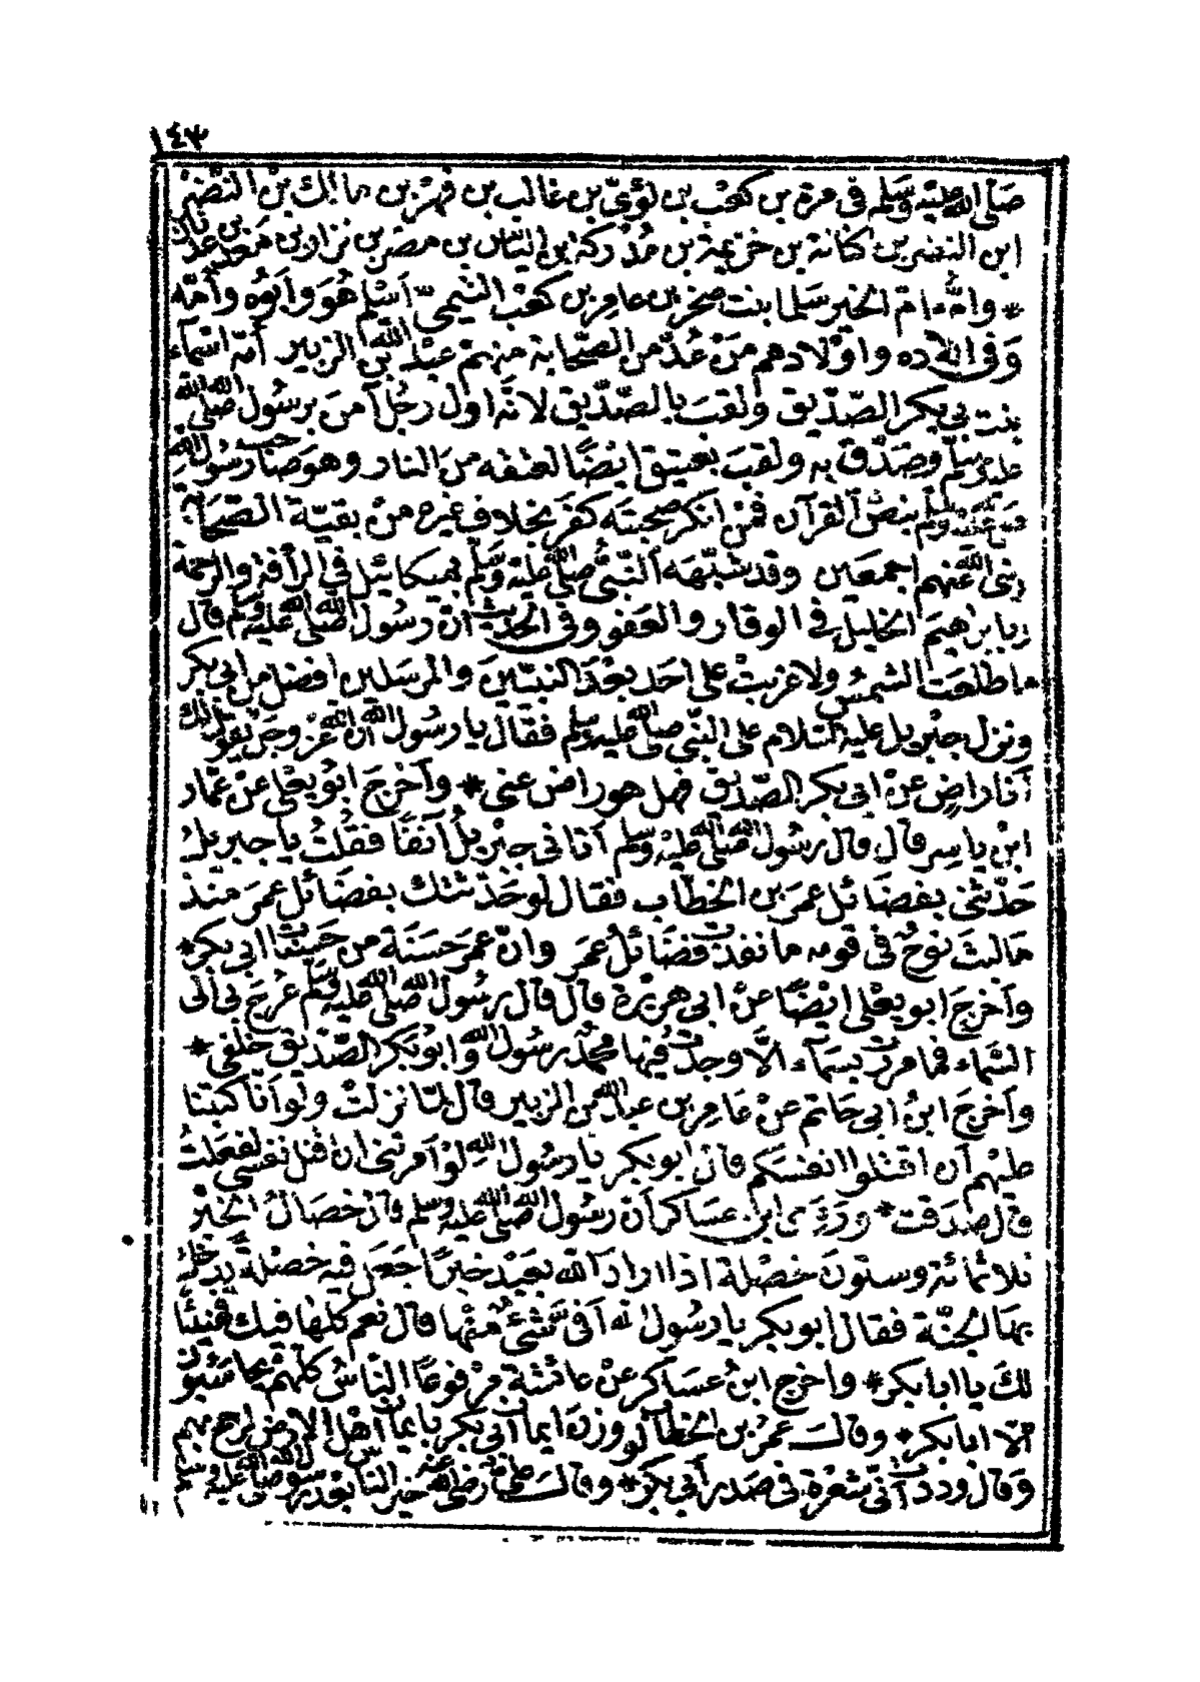 ١٤٣
صلى الله عليه وسلم في مرة بن كعب بن لؤي بن غالب بن فهر بن مالك بن النضر
ابن النضر بن كنانة بن خزيمة بن مدركة ابن الياس بن مضر بن نزار بن معد بن عدنان
* وامه ام الخير سلما بنت صخر بن عامر بن كعب التيمي اسلم هو وابوه وامه
وفي اولاده واولادهم من عد من الصحابة منهم عبد الله بن الزبير امه اسماء
بنت بي بكر الصديق ولقب بالصديق لانه اول رجل آمن برسول الله صلى الله
عليه وسلم وصدق به ولقب بعتيق ايضا لعتقه من النار وهو صاحب رسول الله
صلى الله عليه وسلم بنص القرآن فمن انكر صحبته كفر بخلاف غيره من بقية الصحابة
رضى الله عنهم اجمعين وقد شبهه النبي صلى الله عليه وسلم بميكائيل في الرأفة والرحمة
وبابرهيم الخليل في الوقار والعفو وفي الحديث ان رسول الله صلى الله عليه وسلم قال
ما طلعت الشمس ولا غربت على احد بعد النبيين والمرسلين افضل من ابي بكر
ونزل جبريل عليه السلام على النبي صلى الله عليه وسلم فقال يا رسول الله ان الله عز وجل يقول لك
انا راض عن ابي بكر الصديق فهل هو راض عني * واخرج ابو يعلى عن عمار
ابن ياسر قال قال رسول الله صلى الله عليه وسلم اتاني جبريل آنفا فقلت يا جبريل
حدثني بفضائل عمر بن الخطاب فقال لو حدثتك بفضائل عمر منذ
ما لبث نوح في قومه ما نفدت فضائل عمر وان عمر حسنة من حسنات ابي بكر *
واخرج ابو يعلى ايضا عن ابي هريرة قال قال رسول الله صلى الله عليه وسلم عرج بي الى
السماء فما مررت بسماء الا وجدت فيها محمد رسول الله وابو بكر الصديق خلفي *
واخرج ابن ابي حاتم عن عامر بن عبد الله بن الزبير قال لما نزلت ولو انا كتبنا
عليهم ان اقتلوا انفسكم قال ابو بكر يا رسول الله لو امرتني ان اقتل نفسي لفعلت
قال صدقت * وروى ابن عساكر ان رسول الله صلى الله عليه وسلم قال خصال الخير
ثلاثمائة وستون خصلة اذا اراد الله بعبد خيرا جعل فيه خصلة يدخله
بها الجنة فقال ابو بكر يا رسول الله افي شئ منها قال نعم كلها فيك فهنيئا
لك يا ابا بكر * واخرج ابن عساكر عن عائشة مرفوعا الناس كلهم يحاسبون
الا ابا بكر * وقالـ عمر بن الخطاب لو وزن ايمان ابي بكر بايمان اهل الارض لرجح بهم
وقال وددت اني شعرة في صدر ابي بكر * وقالـ علي رضى الله عنه خير الناس بعد رسول الله صلى الله عليه وسلم